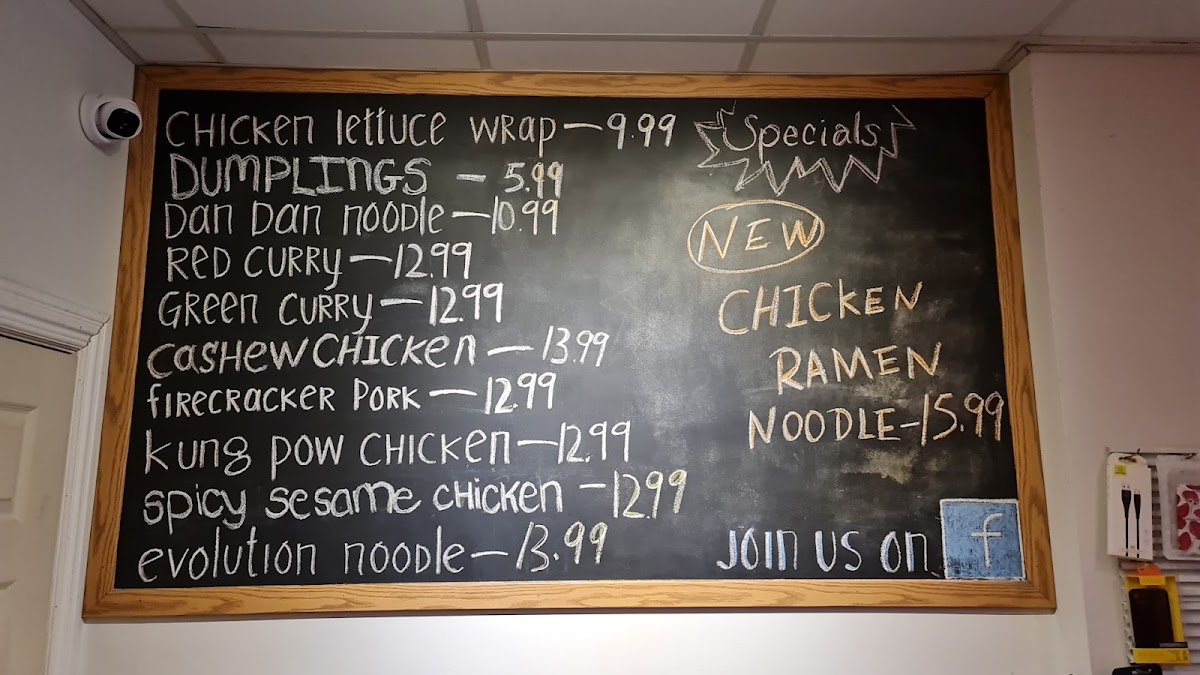 CHICKEN lettuce WRAP - 9.99
DUMPLINGS - 5.99
DAN DAN NOODLE - 10.99
RED CURRY - 12.99
GREEN CURRY - 12.99
CASHEW CHICKEN - 13.99
FIRECRACKER PORK - 12.99
kung pow CHICKEN - 12.99
spicy sesame CHICKEN - 12.99
evolution noodle - 13.99
Specials
NEW
CHICKEN
RAMEN
NOODLE - 15.99
JOIN US ON f